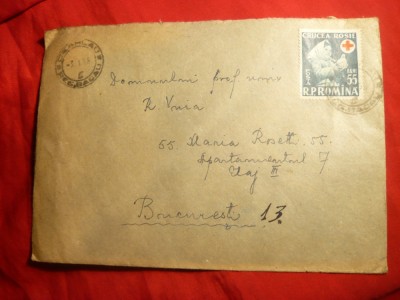 CRUCEA ROSIE
LEI 55
R.P.ROMINA
Domnului Prof univ
R Vuia
55. Maria Rosetti 55.
Apartamentul 7
Etaj III
Bucuresti 13.